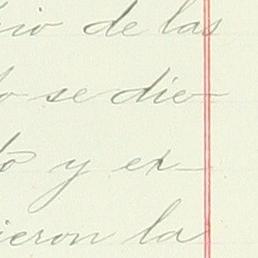 rio de las
o se die-
to y ex-
ieron la